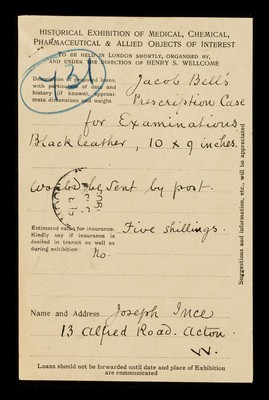 HISTORICAL EXHIBITION OF MEDICAL, CHEMICAL,
PHARMACEUTICAL & ALLIED OBJECTS OF INTEREST
TO BE HELD IN LONDON SHORTLY, ORGANISED BY,
AND UNDER THE DIRECTION OF HENRY S. WELLCOME
31
Description of proposed loans,
with particulars of date and
history (if known), approxi-
mate dimensions and weight
Jacob Bell's
Prescription Case
for Examinations
Black leather, 10 x 9 inches.
would be sent by post.
Estimated value for insurance.
Kindly say if insurance is
desired in transit as well as
during exhibition
Five shillings.
No.
Name and Address
Joseph Ince
13 Alfred Road. Acton.
W.
Loans should not be forwarded until date and place of Exhibition
are communicated
Suggestions and information, etc., will be appreciated